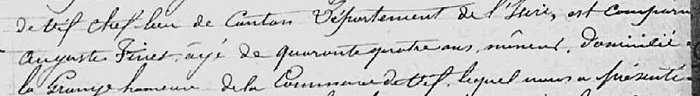 de Vif chef lieu de Canton Département de l'Isère, est comparu
Auguste Finet, âgé de quarante quatre ans, mineur, domicilié à
la Grange hameau de la Commune de Vif, lequel nous a présenté